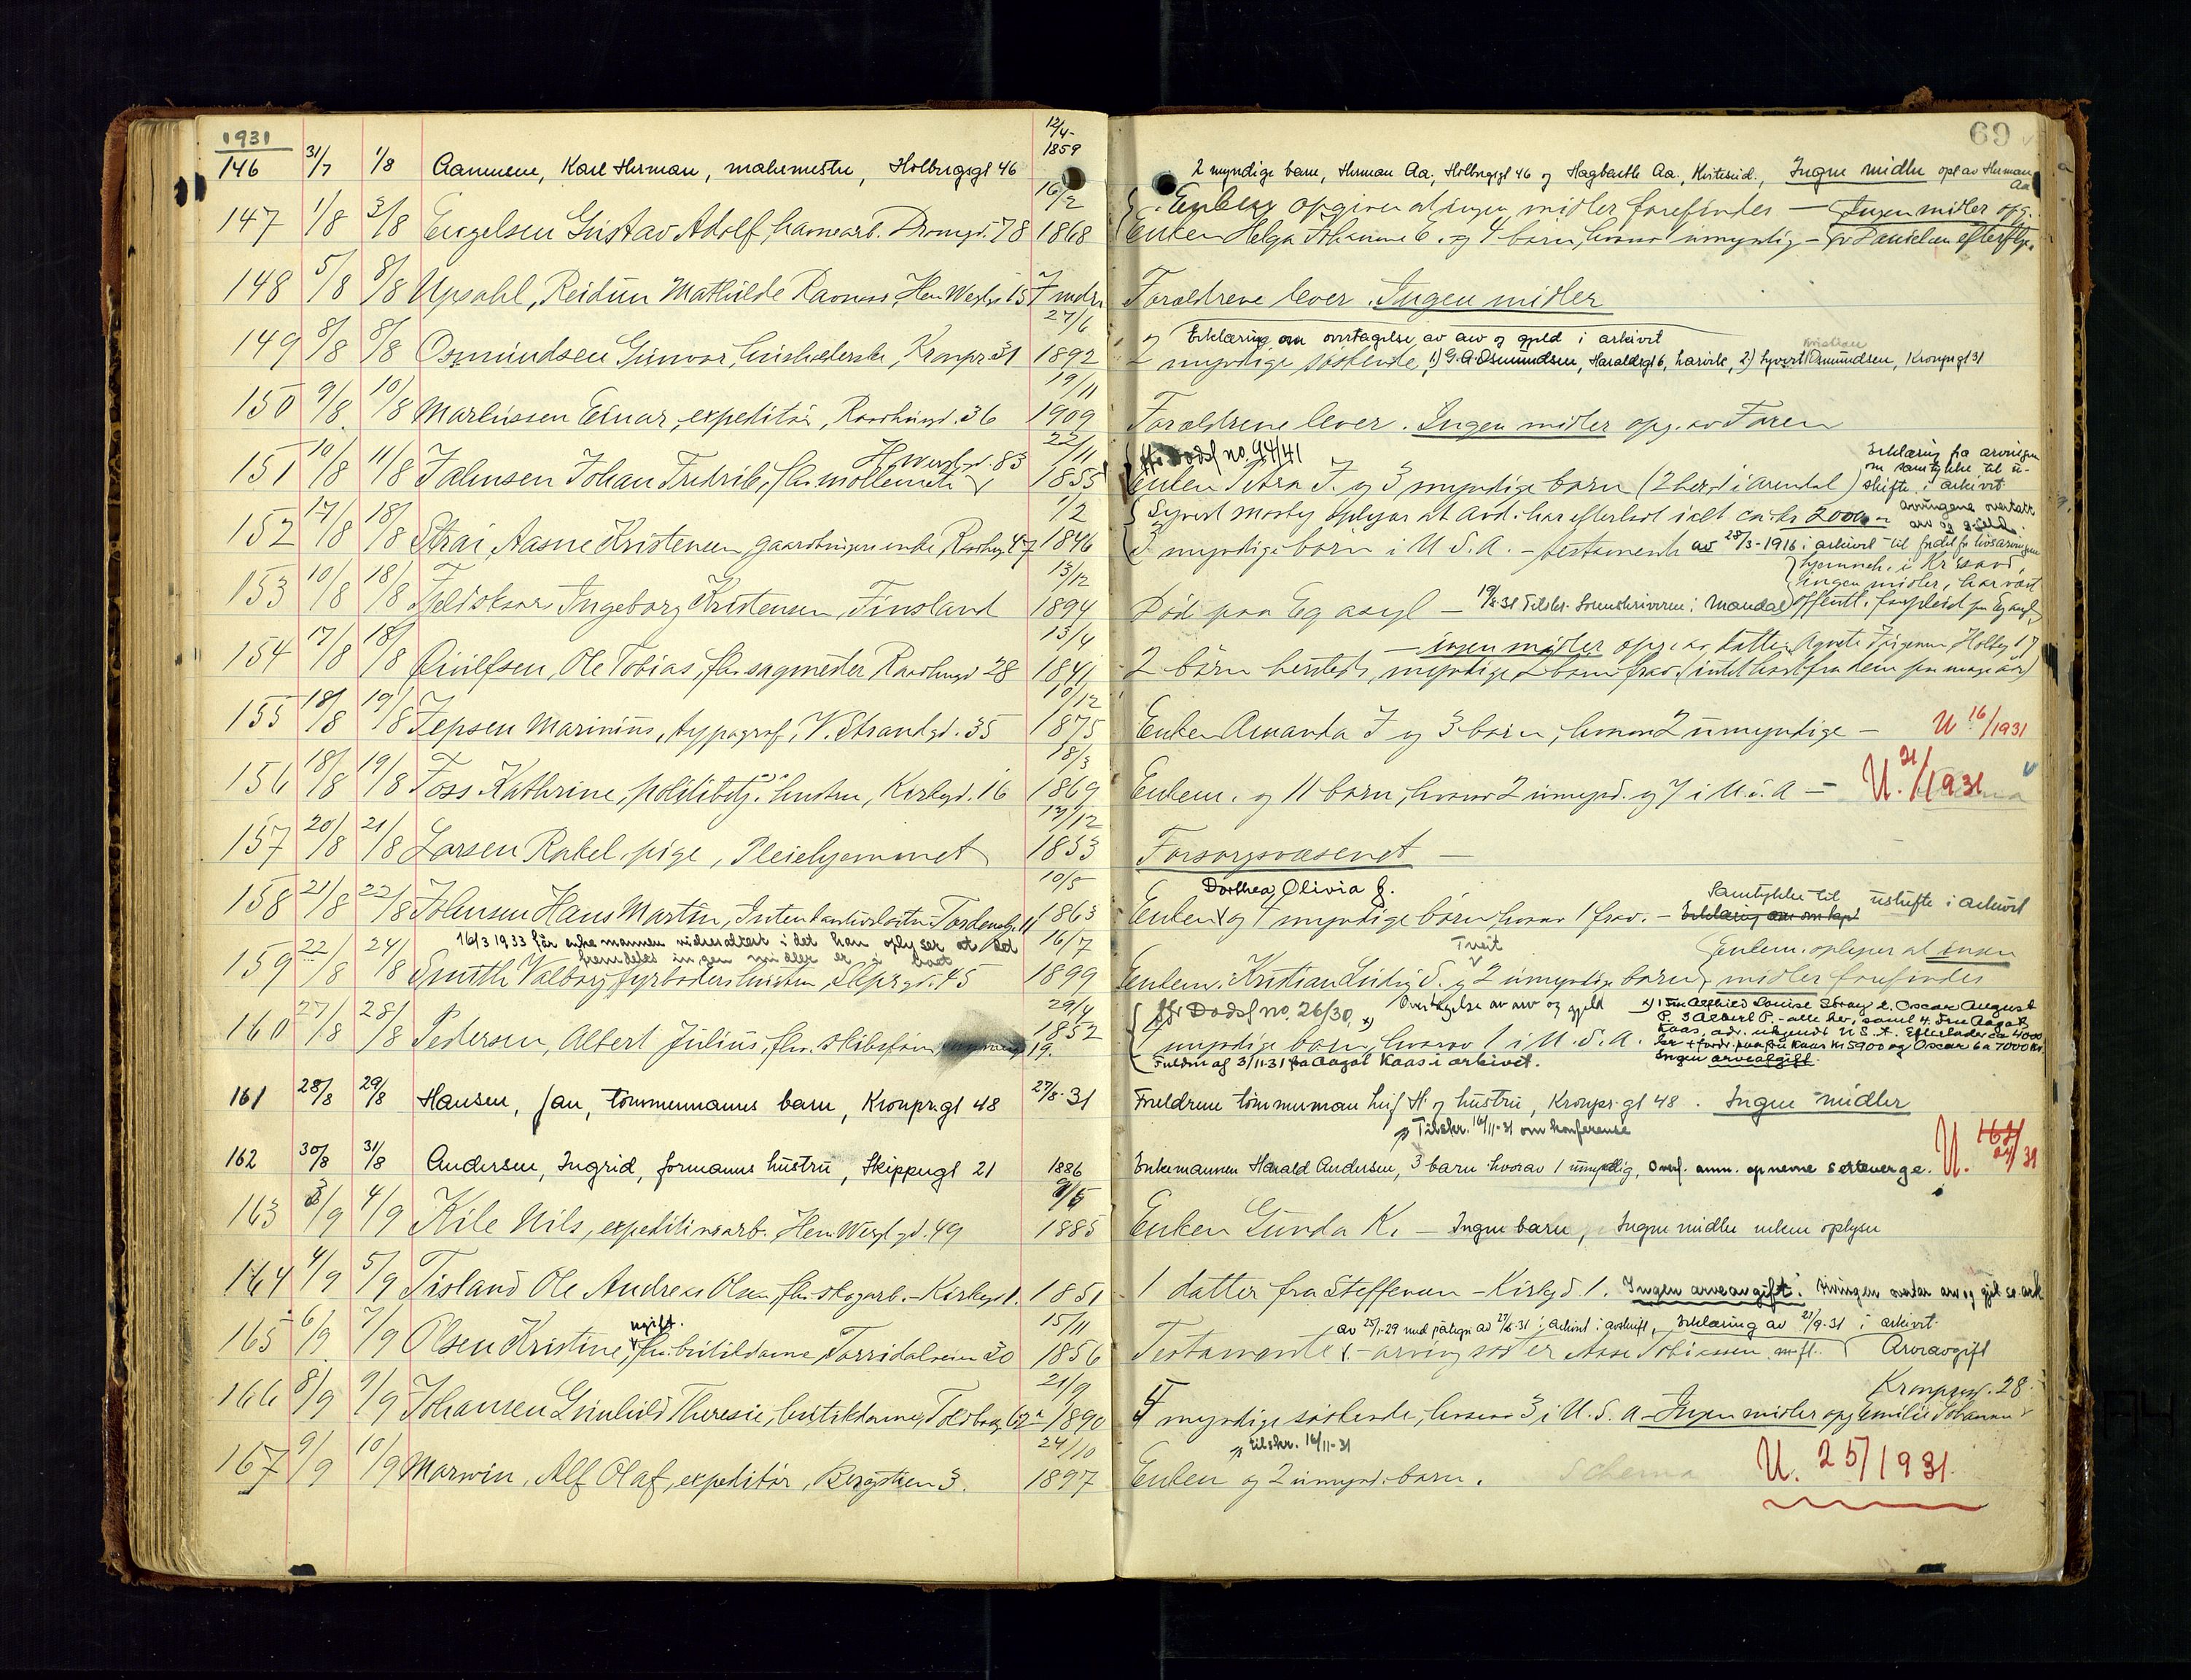 1931
69
146 31/7 1/8 Aanensen, Karl Herman, malermester, Holbergsgt 46 12/4-1859
2 myndige barn, Herman Aa., Holbergsgt 46 og Hagbarth Aa., Kvitesid., Ingen midler opl av Herman Aa
147 1/8 3/8 Engelsen Gustav Adolf, havnearb. Dronn.gd. 78 16/2 1868
opgiver at ingen midler forefindes — Ingen midler opg.
Enken Helga Johanne E. og 4 barn, hvorav 1 umyndig
148 5/8 8/8 Upsahl, Reidun Mathilde Ravnaas, Hen Wergl 15 7 mdr
Forældrene lever. Ingen midler
149 8/8 8/8 Osmundsen Gunvor, husholderske, Kronpr 31 27/6 1892
Erklæring om overtagelse av arv og gjeld i arkivet
2 myndige søskende, 1) G. A. Osmundsen, Haraldsgt 6, Larvik, 2) Syvert Osmundsen, Kronprgt 31
150 9/8 10/8 Markussen Einar, expeditør, Raadhusgd. 36 19/11 1909
Forældrene lever. Ingen midler opg. av Faren
H Wergl gd. 83
151 10/8 11/8 Johnsen Johan Fredrik, fhv. 22/11 1855
Dodsf no. 94/41
Erklæring fra arvingen om samtykke til u-skifte i arkivet
Enken Petra J. og 3 myndige børn (2 her, 1 i Arendal)
152 17/8 18/8 Strai, Aasne Kristensen gaardbrugers enke Raadhusg 47 1/2 1846
Syvert Mosby oplyser at Avd. har efterladt i alt ca. kr 2000
arvingene overtatt arv og gjeld.
3 myndige børn i U.S.A. – testamente av 28/3-1916 i arkivet – til fordel for livsarvingene
153 10/8 18/8 Fjeldskaar Ingeborg Kristensen, Finsland 13/12 1894
hjemmeh. i Kr.sand, ingen midler, har vært offentl. forpleid paa Eg asyl
Død paa Eg asyl — 19/8-31 Tilskr. Sorenskriveren i Mandal
154 17/8 18/8 Ole Tobias, fhv. sagmester Raadhusgd 28 13/4 1841
ingen midler opg. av datter Agnete Jørgensen Holbg 17
2 børn myndige 2 barn frav. (intet hørt fra dem paa mange aar)
155 18/8 19/8 Jepsen Marinius, typograf, V. Strandgd. 35 10/12 1875
Enken Amanda J og 3 børn, hvorav 2 umyndige — U 16/1931
156 18/8 19/8 Foss Kathrine, politibetj. hustru, Kirkegd. 16 18/3 1869
Enkem. og 11 børn, hvorav 2 umynd. og 7 i U.S.A — U. 21/1931
157 20/8 21/8 Larsen Rakel, pige, Pleiehjemmet 1853
Forsorgsvæsenet —
158 21/8 22/8 Johnsen Hans Martin, Tordenskg 11 10/5 1863
Dorthea Olivia J.
Enken og 7 myndige børn, hvorav 1 frav. – Samtykke til uskifte i arkivet
16/3 1933 får enkemannen vidnealtest i det han oplyser at det fremdeles ingen midler er i boet
159 22/8 24/8 Smith Valborg fyrbøders hustru, Elvegd. 45 16/7 1899
Tveit
Enkem. Kristian Ludvig S. og 2 umyndige børn, Enkem. oplyser at ingen midler forefindes
160 27/8 28/8 Pedersen, Albert Julius, fhv. 29/4 1852
Dødsf no. 26/30 x) Overtagelse av arv og gjeld
x) 1 Fru Alfhild Louise Stray 2. Oscar August P. 3 Albert P. – alle her, samt 4. Fru Aagot Kaas, adr. ukjendt U.S.A. Efterlader ca 4000 kr + fordr. paa fru Kaas kr 5900 og Oscar 6 a 7000 kr. Ingen arveavgift.
myndige børn, hvorav 1 i U.S.A.
Fuldm af 3/11-31 fra Aagot Kaas i arkivet.
161 28/8 29/8 Hansen, Jan, tømmermanns barn, Kronpr.gt 48 27/8-31
Foreldrene tømmerman Leif H og hustru, Kronpr.gt 48. Ingen midler
162 30/8 31/8 Andersen, Ingrid, formanns hustru, Skippergt 21 1886
Tilskr. 16/11-31 om konferense
Enkemannen Harald Andersen, 3 barn hvorav 1 umyndig, overf. anm. opnevne setteverge. U. 24/31
163 3/9 4/9 Kile Nils, expedisjonsarb. Hen Wergl gd. 49 9/5 1885
Enken Gunda K. – Ingen barn, Ingen midler enken oplyser
164 4/9 5/9 Tisland Ole Andreas Olsen, fhv. skogarb. – Kirkegd 1. 1851
1 datter fru Steffensen – Kirkgd 1. Ingen arveavgift. Arvingen overtar arv og gjel se ark
165 6/9 7/9 Olsen Kristine, ugift. fhv. butikdame, Torridalveien 30 15/11 1856
av 25/1-29 med påtegn av 27/6-31 i arkivet i avskrift, Erklæring av 21/9-31 i arkivet.
Testamente – arving søster Aase Tobiassen Arveavgift
166 8/9 9/9 Johansen Gunhild Theresie, butikdame, Toldbodg 62a 21/9 1890
Kronprgd. 28
4 myndige søskende, hvorav 3 i U.S.A – Ingen midler opg Emilie Johansen
167 9/9 10/9 Marwin, Alf Olaf, expeditør, Bergstien 3. 24/10 1897
tilskr. 16/11-31
Enken og 2 umynd. barn. Schema U. 25/1931